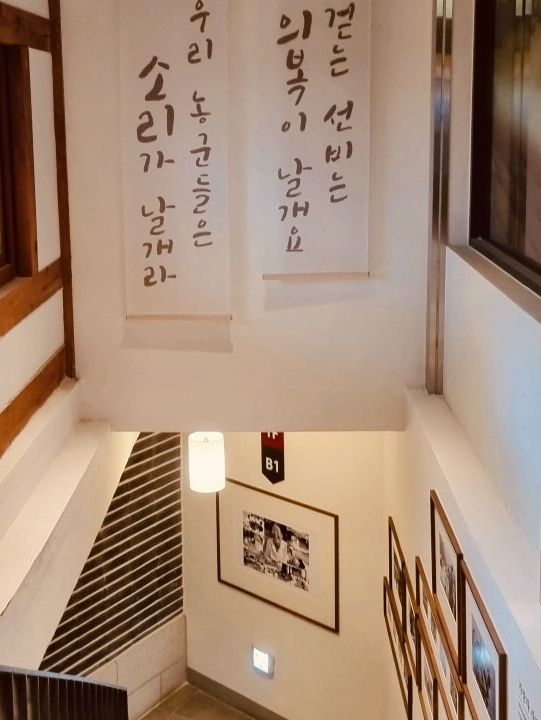 걷는 선비는
의복이 날개요
우리 농군들은
소리가 날개라
1F
B1